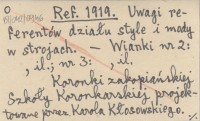 Ref. 1919. Uwagi re-
ferentów działu style i mody
w strojach. — Wianki nr. 2:
, il.; nr. 3: , il.
Koronki zakopiańskiej
Szkoły Koronkarskiej, projek-
towane przez Karola Kłosowskiego. %.